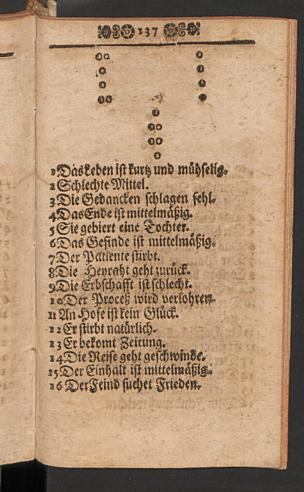 137
1 Das Leben ist kurtz und mühselig.
2 Schlechte Mittel.
3 Die Gedancken schlagen fehl.
4 Das Ende ist mittelmäßig.
5 Sie gebiert eine Tochter.
6 Das Gesinde ist mittelmäßig.
7 Der Patiente stirbt.
8 Die Heyraht geht zurück.
9 Die Erbschafft ist schlecht.
10 Der Proceß wird verlohren.
11 An Hofe ist kein Glück.
12 Er stirbt natürlich.
13 Er bekomt Zeitung.
14 Die Reise geht geschwinde.
15 Der Einhalt ist mittelmäßig.
16 Der Feind suchet Frieden.